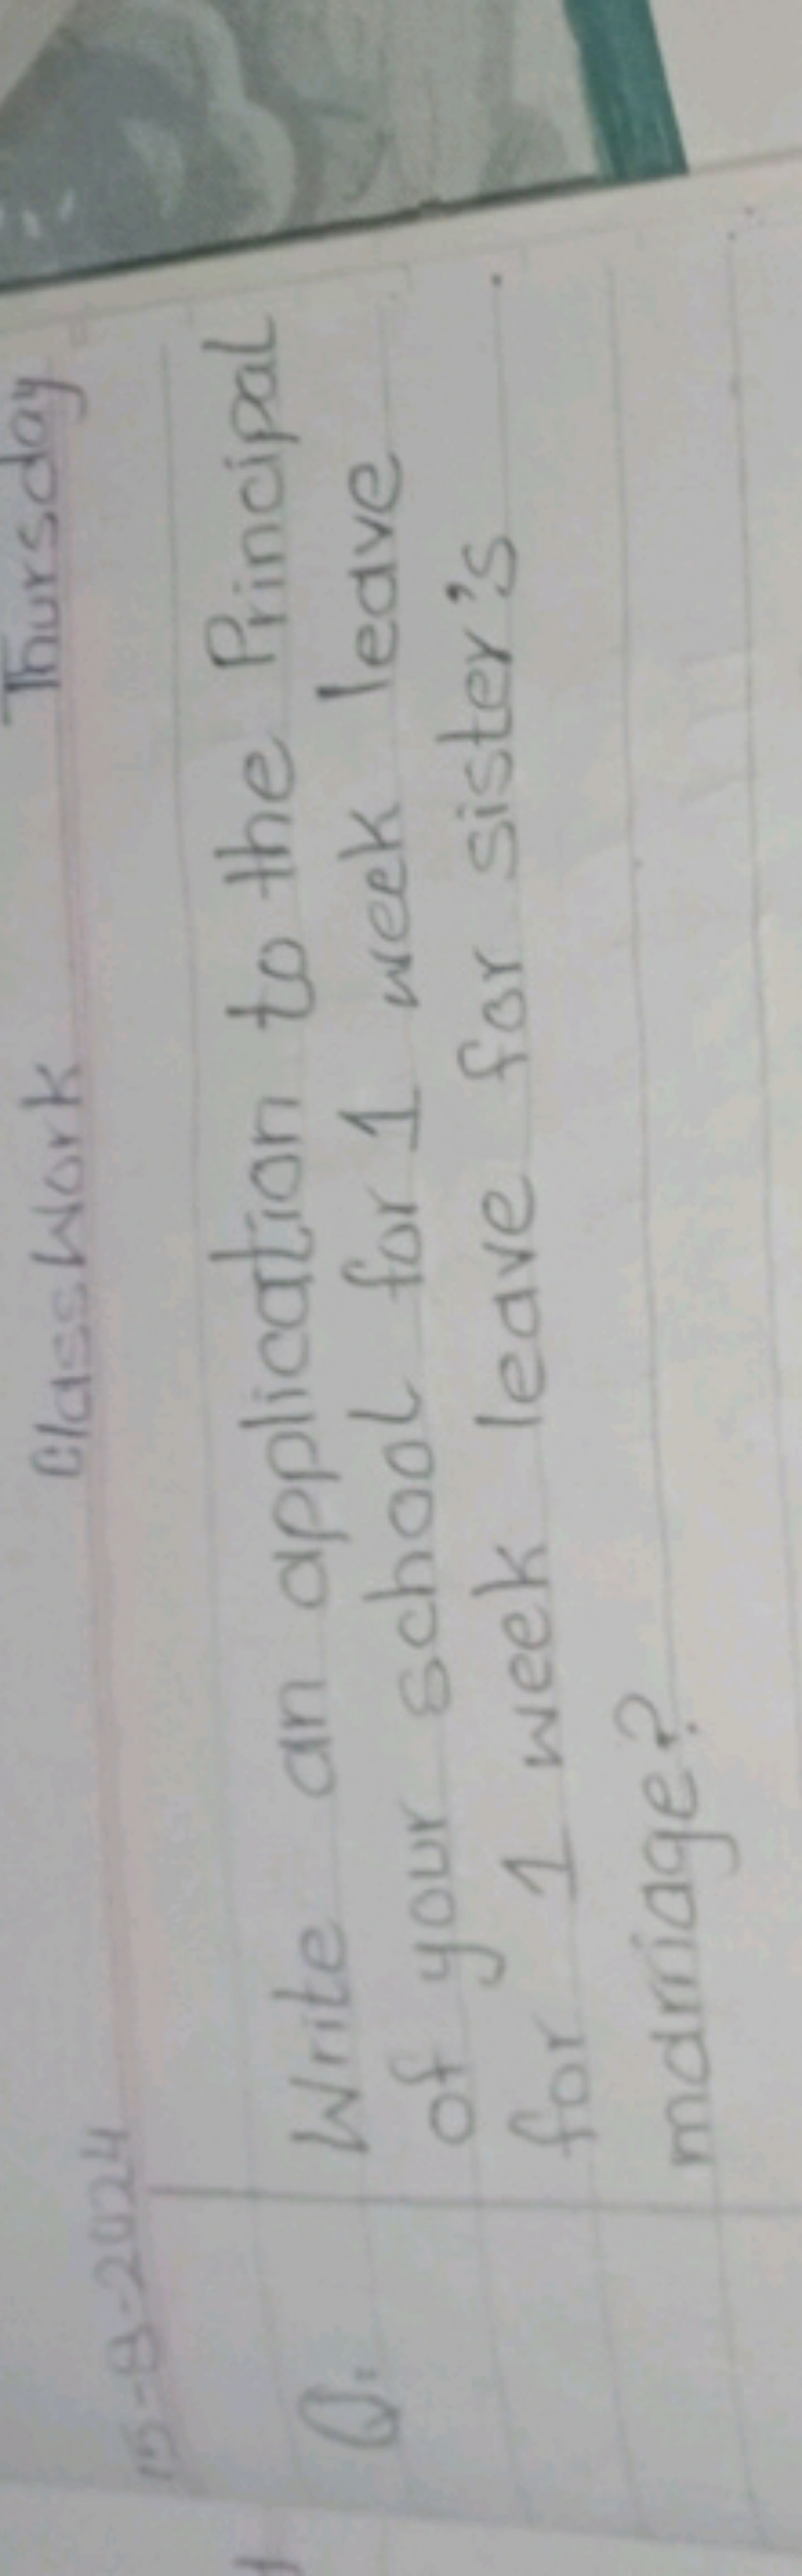 15-8-2024 Class Work Thursday
Q. Write an application to the Principal
of your school for 1 week leave
for 1 week leave for sister's
marriage?